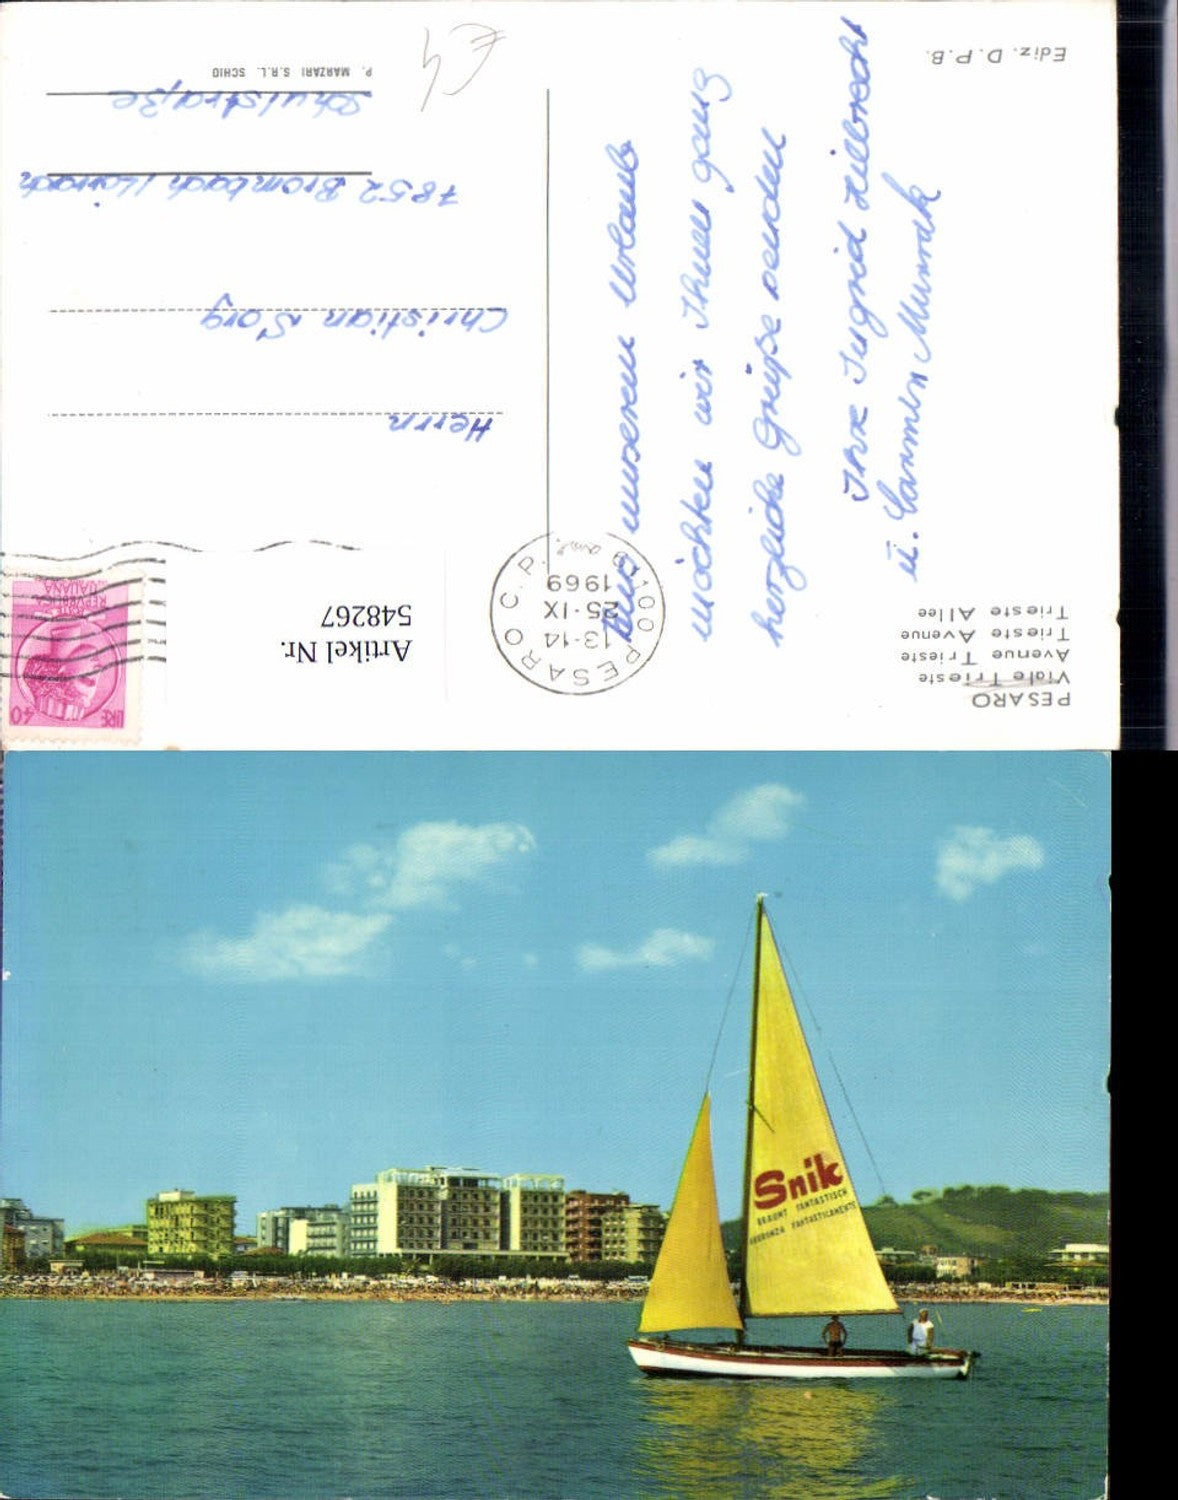 PESARO
Viale Trieste
Avenue Trieste
Trieste Avenue
Trieste Allee
Ediz. D.P.B.
Aus unseren Urlaub
möchten wir Ihnen ganz
herzliche Grüße senden
Ihre Ingrid Hilbrecht
u. Carmen
61100 PESARO C.P.
13-14
25·IX
1969
LIRE 40
POSTE
REPVBBLICA
ITALIANA
Artikel Nr.
548267
Herrn
Christian Sorg
7852 Brombach
Schulstraße
P. MARZARI S.R.L. SCHIO
€4
Snik
BRAUNT FANTASTISCH
ABBRONZA FANTASTICAMENTE